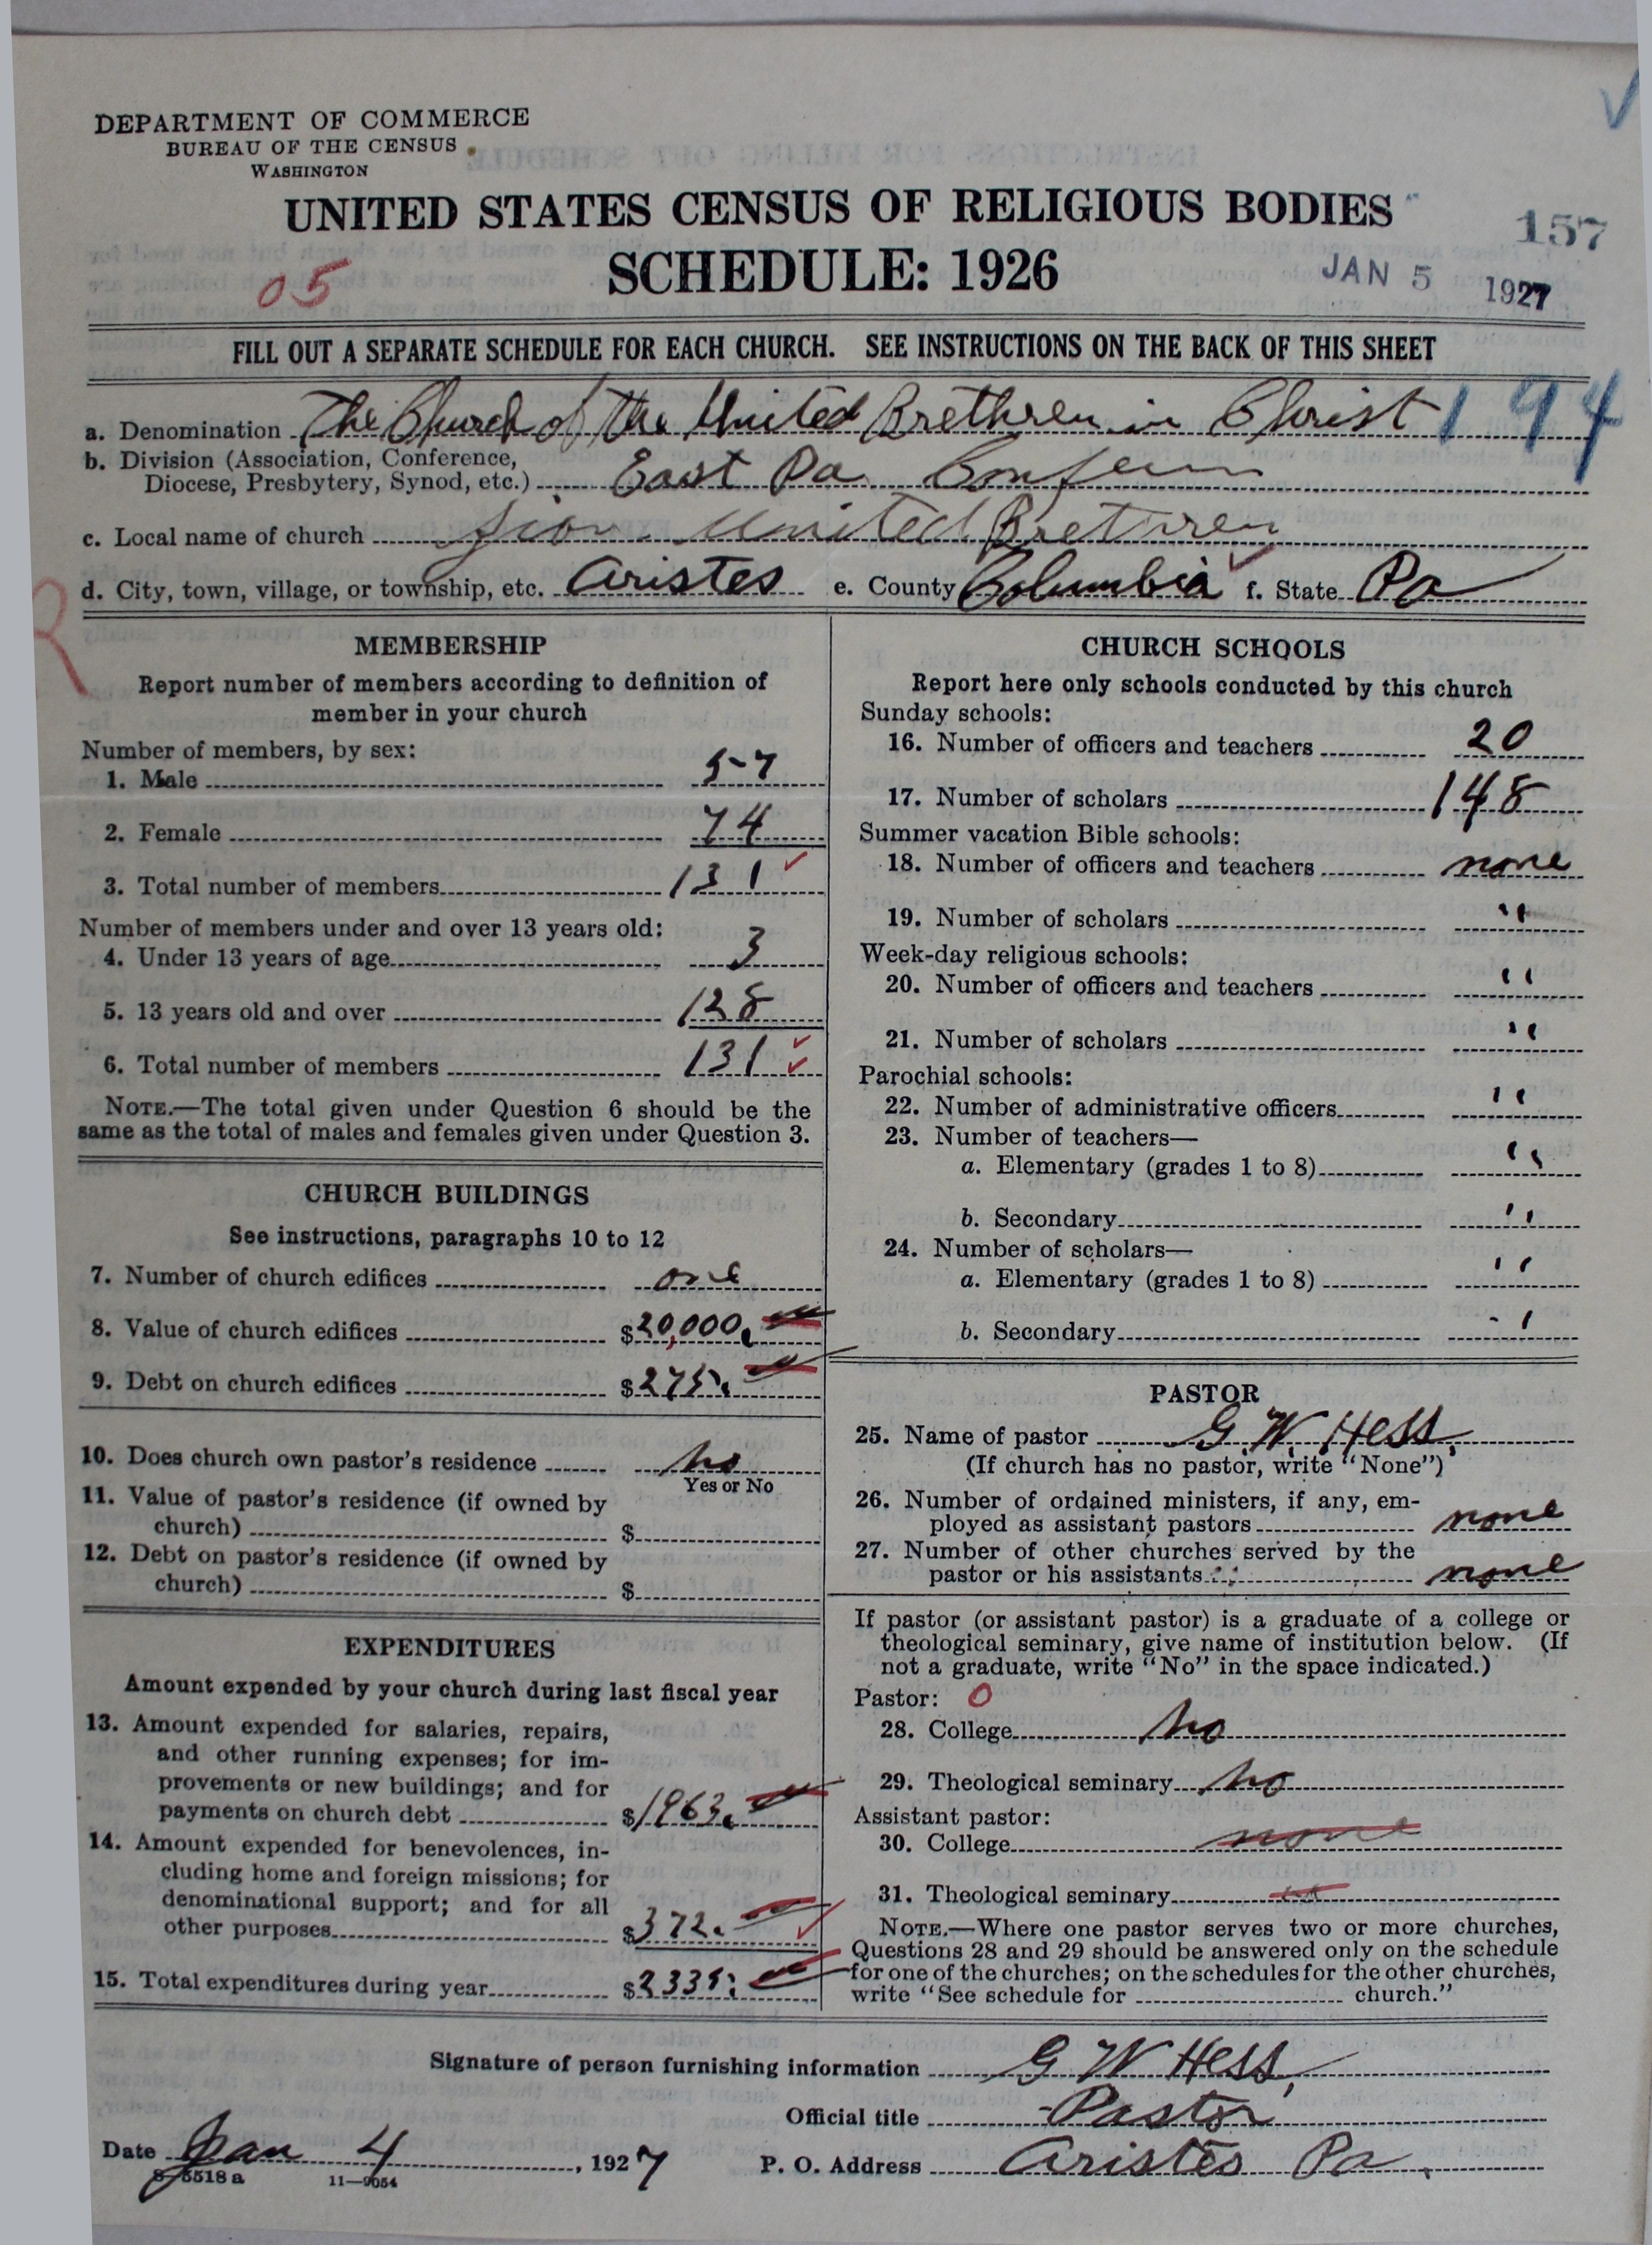 DEPARTMENT OF COMMERCE
BUREAU OF THE CENSUS
WASHINGTON
UNITED STATES CENSUS OF RELIGIOUS BODIES
SCHEDULE: 1926
157
JAN 5 1927
05
FILL OUT A SEPARATE SCHEDULE FOR EACH CHURCH. SEE INSTRUCTIONS ON THE BACK OF THIS SHEET
a. Denomination The Church of the United Brethren in Christ 194
b. Division (Association, Conference,
Diocese, Presbytery, Synod, etc.) East Pa
c. Local name of church Zion United Brethren
d. City, town, village, or township, etc. Aristes e. County Columbia f. State Pa
R
MEMBERSHIP
Report number of members according to definition of
member in your church
Number of members, by sex:
1. Male 57
2. Female 74
3. Total number of members 131
Number of members under and over 13 years old:
4. Under 13 years of age 3
5. 13 years old and over 128
6. Total number of members 131
NOTE.—The total given under Question 6 should be the
same as the total of males and females given under Question 3.
CHURCH BUILDINGS
See instructions, paragraphs 10 to 12
7. Number of church edifices one
8. Value of church edifices $20,000.
9. Debt on church edifices $275.
10. Does church own pastor's residence no
Yes or No
11. Value of pastor's residence (if owned by
church) $
12. Debt on pastor's residence (if owned by
church) $
EXPENDITURES
Amount expended by your church during last fiscal year
13. Amount expended for salaries, repairs,
and other running expenses; for im-
provements or new buildings; and for
payments on church debt $1963.
14. Amount expended for benevolences, in-
cluding home and foreign missions; for
denominational support; and for all
other purposes $372.
15. Total expenditures during year $2335.
CHURCH SCHOOLS
Report here only schools conducted by this church
Sunday schools:
16. Number of officers and teachers 20
17. Number of scholars 148
Summer vacation Bible schools:
18. Number of officers and teachers none
19. Number of scholars "
Week-day religious schools:
20. Number of officers and teachers "
21. Number of scholars "
Parochial schools:
22. Number of administrative officers "
23. Number of teachers—
a. Elementary (grades 1 to 8) "
b. Secondary "
24. Number of scholars—
a. Elementary (grades 1 to 8) "
b. Secondary "
PASTOR
25. Name of pastor G. W. Hess.
(If church has no pastor, write "None")
26. Number of ordained ministers, if any, em-
ployed as assistant pastors none
27. Number of other churches served by the
pastor or his assistants none
If pastor (or assistant pastor) is a graduate of a college or
theological seminary, give name of institution below. (If
not a graduate, write "No" in the space indicated.)
Pastor: 0
28. College no
29. Theological seminary no
Assistant pastor:
30. College none
31. Theological seminary "
NOTE.—Where one pastor serves two or more churches,
Questions 28 and 29 should be answered only on the schedule
for one of the churches; on the schedules for the other churches,
write "See schedule for church."
Signature of person furnishing information G W Hess,
Official title Pastor
Date Jan 4, 1927 P. O. Address Aristes Pa.
8-5518a 11—9054